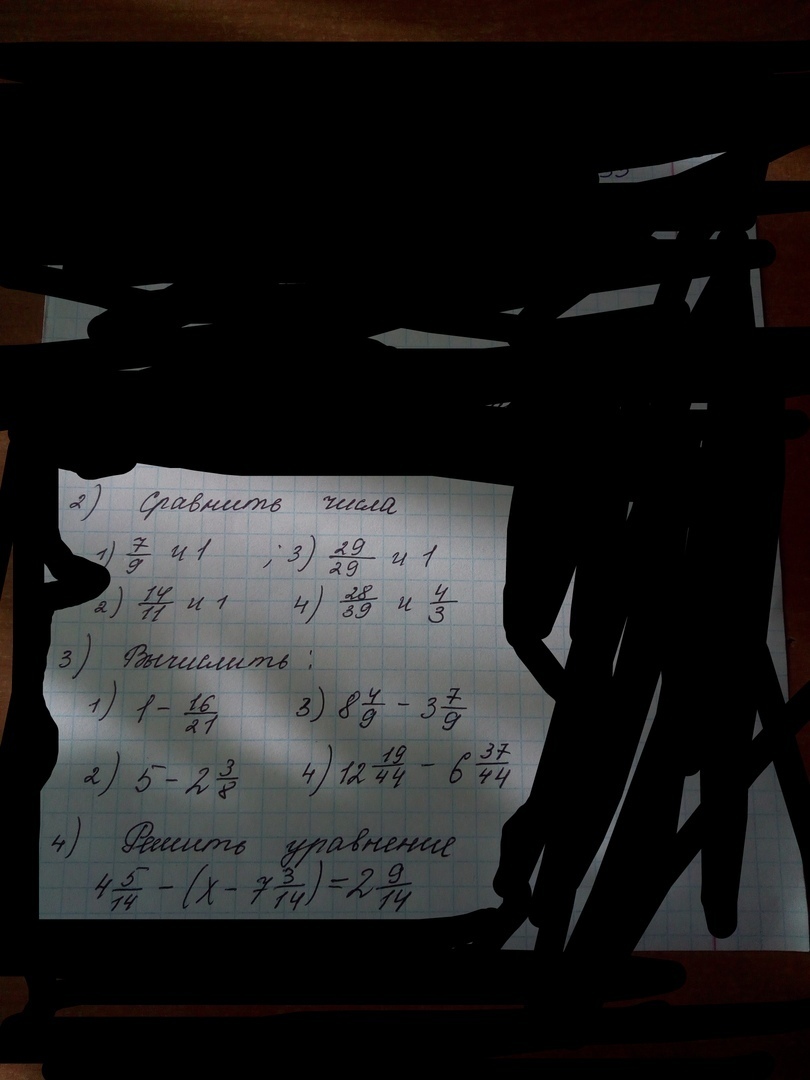 2) Сравнить числа
1) 7/9 и 1 ; 3) 29/29 и 1
2) 14/11 и 1 4) 28/39 и 4/3
3) Вычислить :
1) 1 - 16/21 3) 8 4/9 - 3 7/9
2) 5 - 2 3/8 4) 12 19/44 - 6 37/44
4) Решить уравнение
4 5/14 - (x - 7 3/14) = 2 9/14